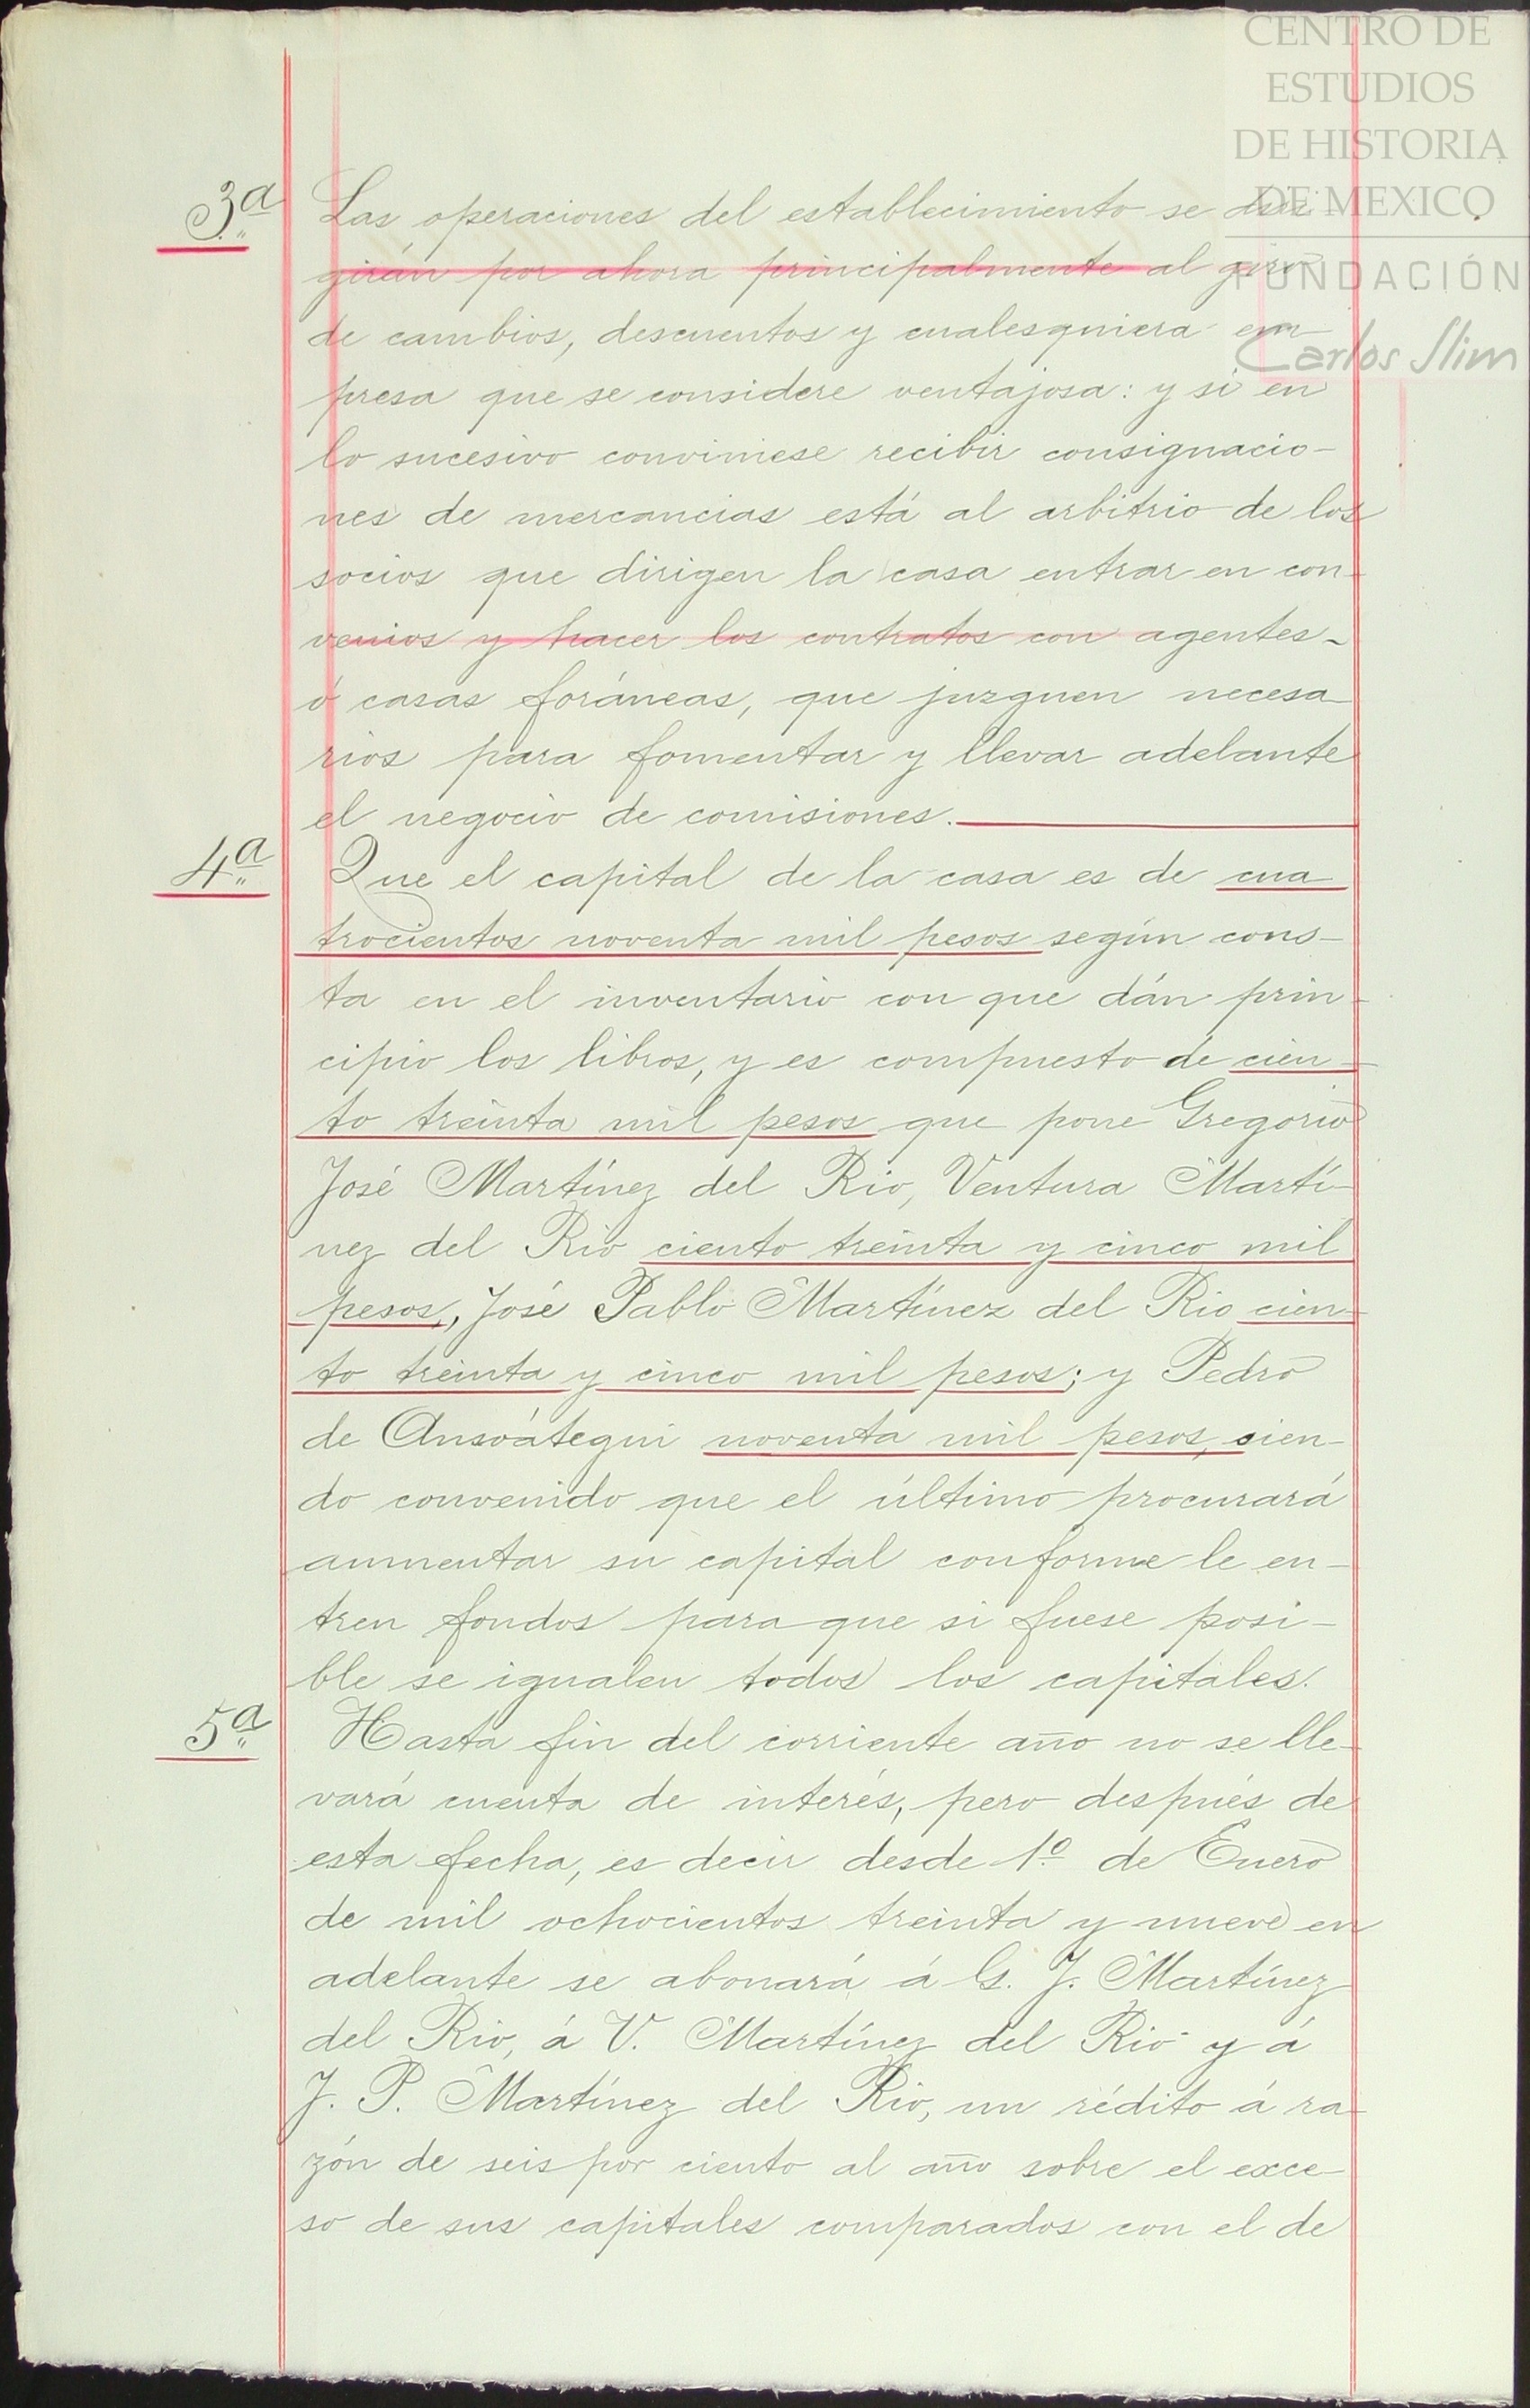 CENTRO DE
ESTUDIOS
DE HISTORIA
DE MEXICO
FUNDACIÓN
Carlos Slim
3ª Las operaciones del establecimiento se diri-
girán por ahora principalmente al giro
de cambios, descuentos y cualesquiera em-
presa que se considere ventajosa: y si en
lo sucesivo conviniese recibir consignacio-
nes de mercancias está al arbitrio de los
socios que dirigen la casa entrar en con-
venios y hacer los contratos con agentes
ó casas foráneas, que juzguen necesa
rios para fomentar y llevar adelante
el negocio de comisiones.
4ª Que el capital de la casa es de cua
trocientos noventa mil pesos según cons-
ta en el inventario con que dán prin-
cipio los libros, y es compuesto de cien-
to treinta mil pesos que pone Gregorio
José Martínez del Rio, Ventura Martí-
nez del Rio ciento treinta y cinco mil
pesos, José Pablo Martínez del Rio cien-
to treinta y cinco mil pesos; y Pedro
de Ansoátegui noventa mil pesos, sien-
do convenido que el último procurará
aumentar su capital conforme le en-
tren fondos para que si fuese posi-
ble se igualen todos los capitales.
5ª Hasta fin del corriente año no se lle-
vará cuenta de interés, pero después de
esta fecha, es decir desde 1º de Enero
de mil ochocientos treinta y nueve en
adelante se abonará á G. J. Martínez
del Rio, á V. Martínez del Rio y á
J. P. Martínez del Rio, un rédito á ra
zón de seis por ciento al año sobre el exce-
so de sus capitales comparados con el de